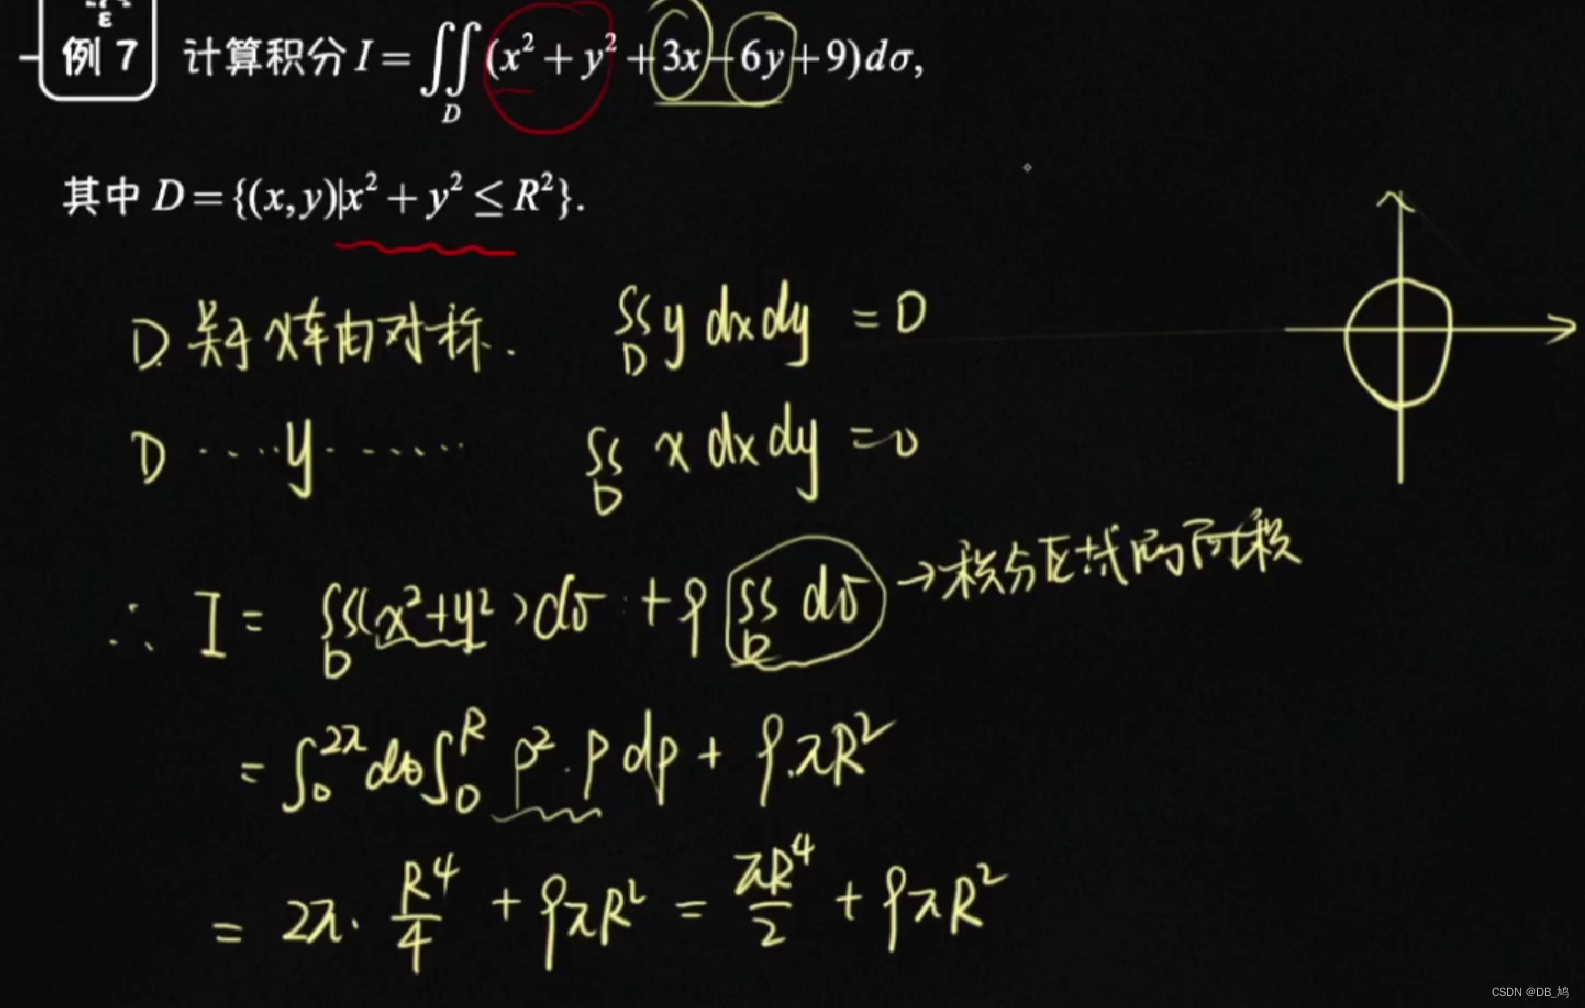 例 7 计算积分 I = ∬_D (x² + y² + 3x − 6y + 9)dσ,
其中 D = {(x, y)|x² + y² ≤ R²}.
D 关于 x轴对称. ∬_D y dx dy = 0
D ····y······ ∬_D x dx dy = 0
∴ I = ∬_D (x²+y²)dσ + 9 ∬_D dσ → 积分区域的面积
= ∫₀^{2π} dθ ∫₀^R ρ²·ρ dρ + 9·πR²
= 2π· R⁴/4 + 9πR² = πR⁴/2 + 9πR²
CSDN @DB_鸠